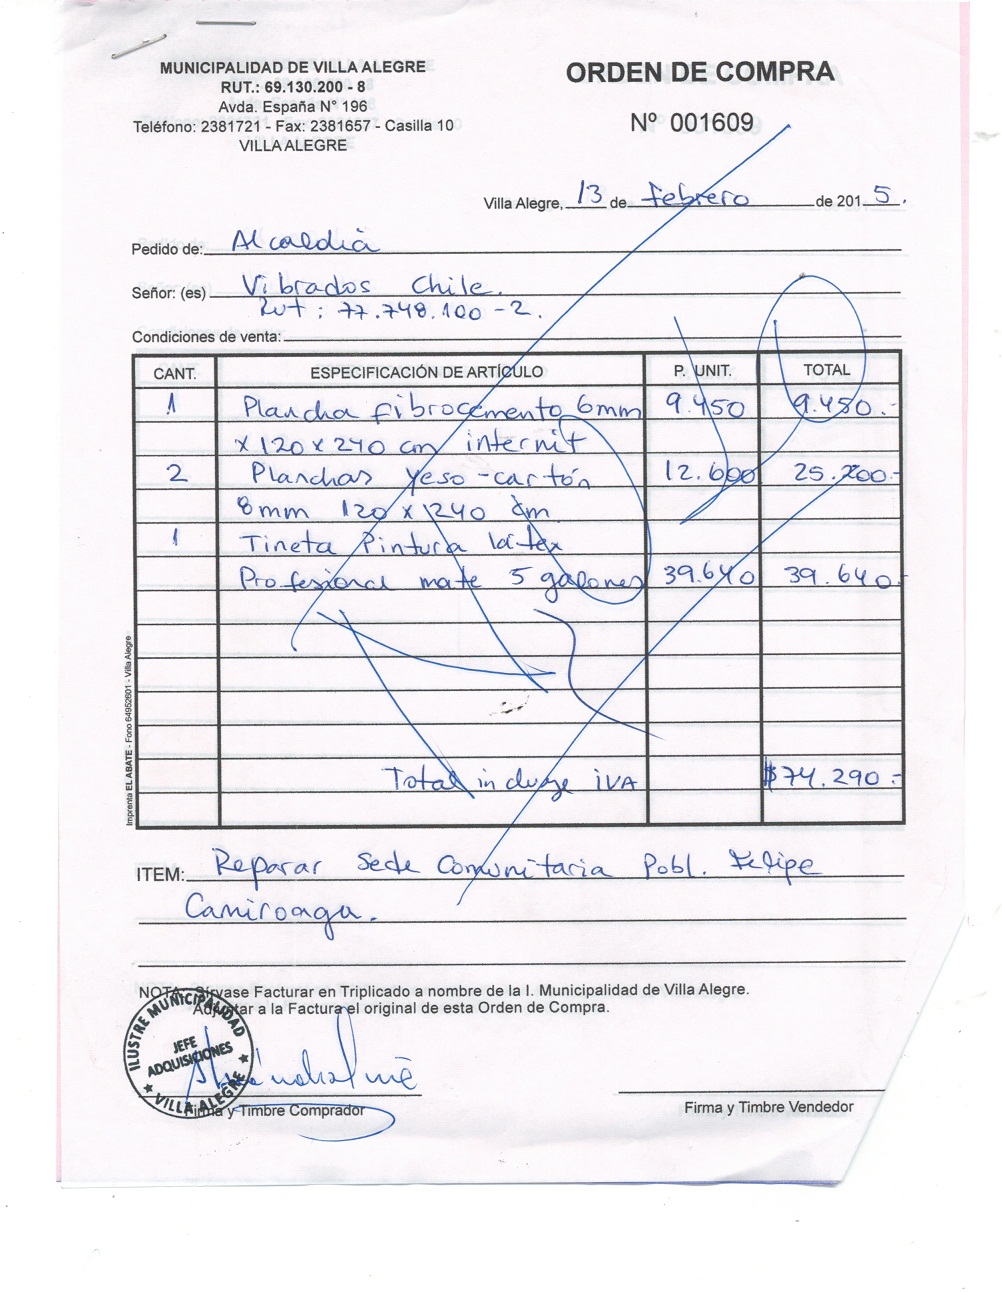 MUNICIPALIDAD DE VILLA ALEGRE
RUT.: 69.130.200 - 8
Avda. España N° 196
Teléfono: 2381721 - Fax: 2381657 - Casilla 10
VILLA ALEGRE
ORDEN DE COMPRA
Nº 001609
Villa Alegre, 13 de febrero de 2015.
Pedido de: Alcaldia
Señor: (es) Vibrados Chile.
Rut : 77.748.100-2.
Condiciones de venta:
CANT. ESPECIFICACIÓN DE ARTÍCULO P. UNIT. TOTAL
1 Plancha fibrocemento 6mm 9.450 9.450.-
x 120 x 240 cm internit
2 Planchas yeso-cartón 12.600 25.200.-
8mm 120 x 240 cm
1 Tineta Pintura latex
Profesional mate 5 galones 39.640 39.640.-
Total incluye IVA $74.290.-
Imprenta EL ABATE - Fono 64952601 - Villa Alegre
ITEM: Reparar Sede Comunitaria Pobl. Felipe
Camiroaga.
NOTA: Sírvase Facturar en Triplicado a nombre de la I. Municipalidad de Villa Alegre.
Adjuntar a la Factura el original de esta Orden de Compra.
ILUSTRE MUNICIPALIDAD
JEFE
ADQUISICIONES
VILLA ALEGRE
Firma y Timbre Comprador
Firma y Timbre Vendedor